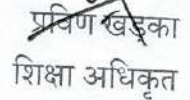 प्रविण खड्का
शिक्षा अधिकृत